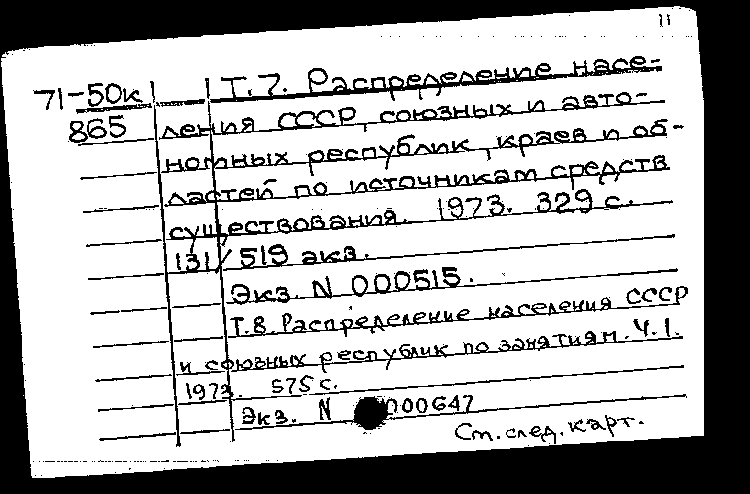 11
71-50к Т.7. Распределение насе-
865 ления СССР, союзных и авто-
номных республик, краев и об-
ластей по источникам средств
существования. 1973. 329 с.
131/519 экз.
Экз. N 000515.
Т.8. Распределение населения СССР
и союзных республик по занятиям. Ч.1.
1973. 575 с.
Экз. N 000647
См. след. карт.